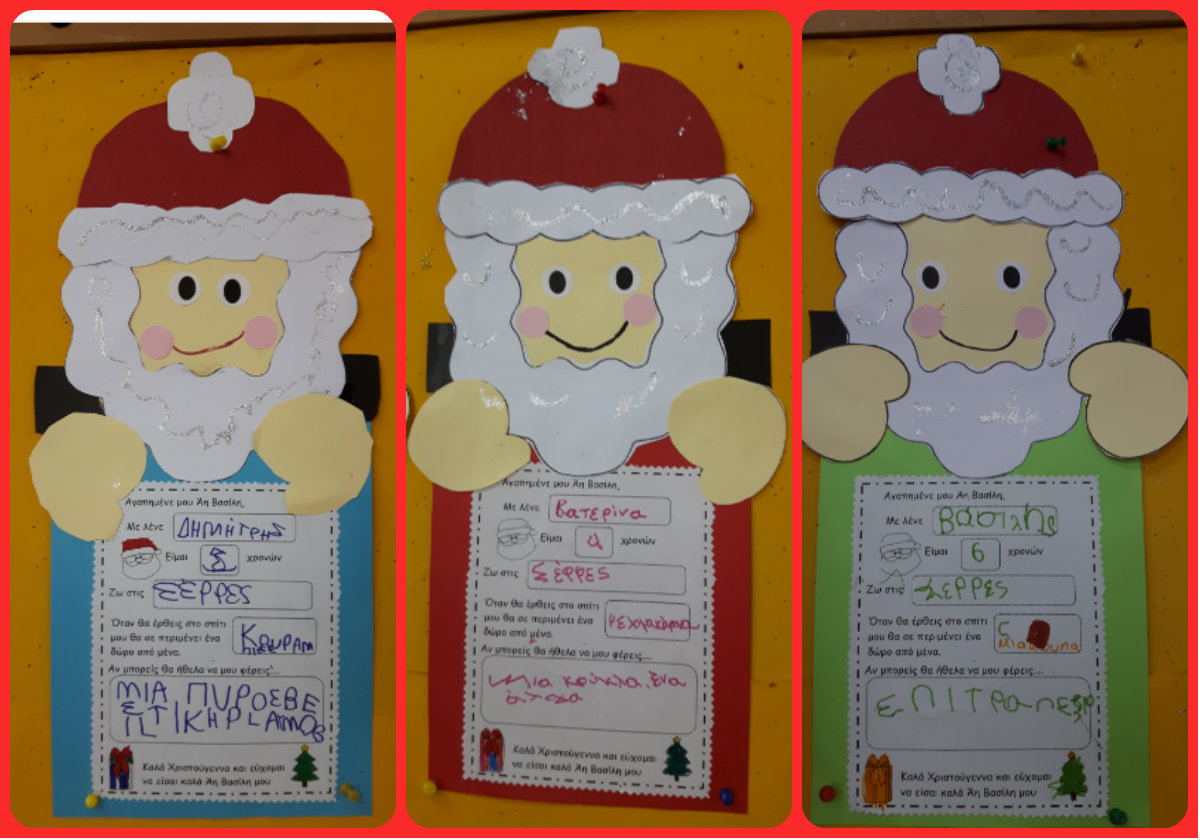 Αγαπημένε μου Άη Βασίλη,
Με λένε ΔΗΜΗΤΡΗΣ
Είμαι χρονών
Ζω στις ΣΕΡΡΕΣ
Όταν θα έρθεις στο σπίτι
μου θα σε περιμένει ένα
δώρο από μένα.
Αν μπορείς θα ήθελα να μου φέρεις....
ΜΙΑ ΠΥΡΟΣΒΕ
Καλά Χριστούγεννα και εύχομαι
να είσαι καλά Άη Βασίλη μου
Αγαπημένε μου Άη Βασίλη,
Με λένε Βατερίνα
Είμαι χρονών
Ζω στις ΣΕΡΡΕΣ
Όταν θα έρθεις στο σπίτι
μου θα σε περιμένει ένα
δώρο από μένα.
Αν μπορείς θα ήθελα να μου φέρεις....
Μια κούκλα ένα
Καλά Χριστούγεννα και εύχομαι
να είσαι καλά Άη Βασίλη μου
Αγαπημένε μου Άη Βασίλη,
Με λένε Βασιλης
Είμαι 6 χρονών
Ζω στις ΣΕΡΡΕΣ
Όταν θα έρθεις στο σπίτι
μου θα σε περιμένει ένα
δώρο από μένα.
Αν μπορείς θα ήθελα να μου φέρεις....
ΕΠΙΤραπεζιο
Καλά Χριστούγεννα και εύχομαι
να είσαι καλά Άη Βασίλη μου